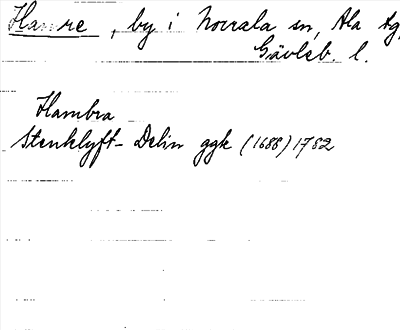 Hamre, by i Norrala sn, Ala tg,
Gävleb. l.
Hambra
Stenklyft- Delin ggk (1688) 1782